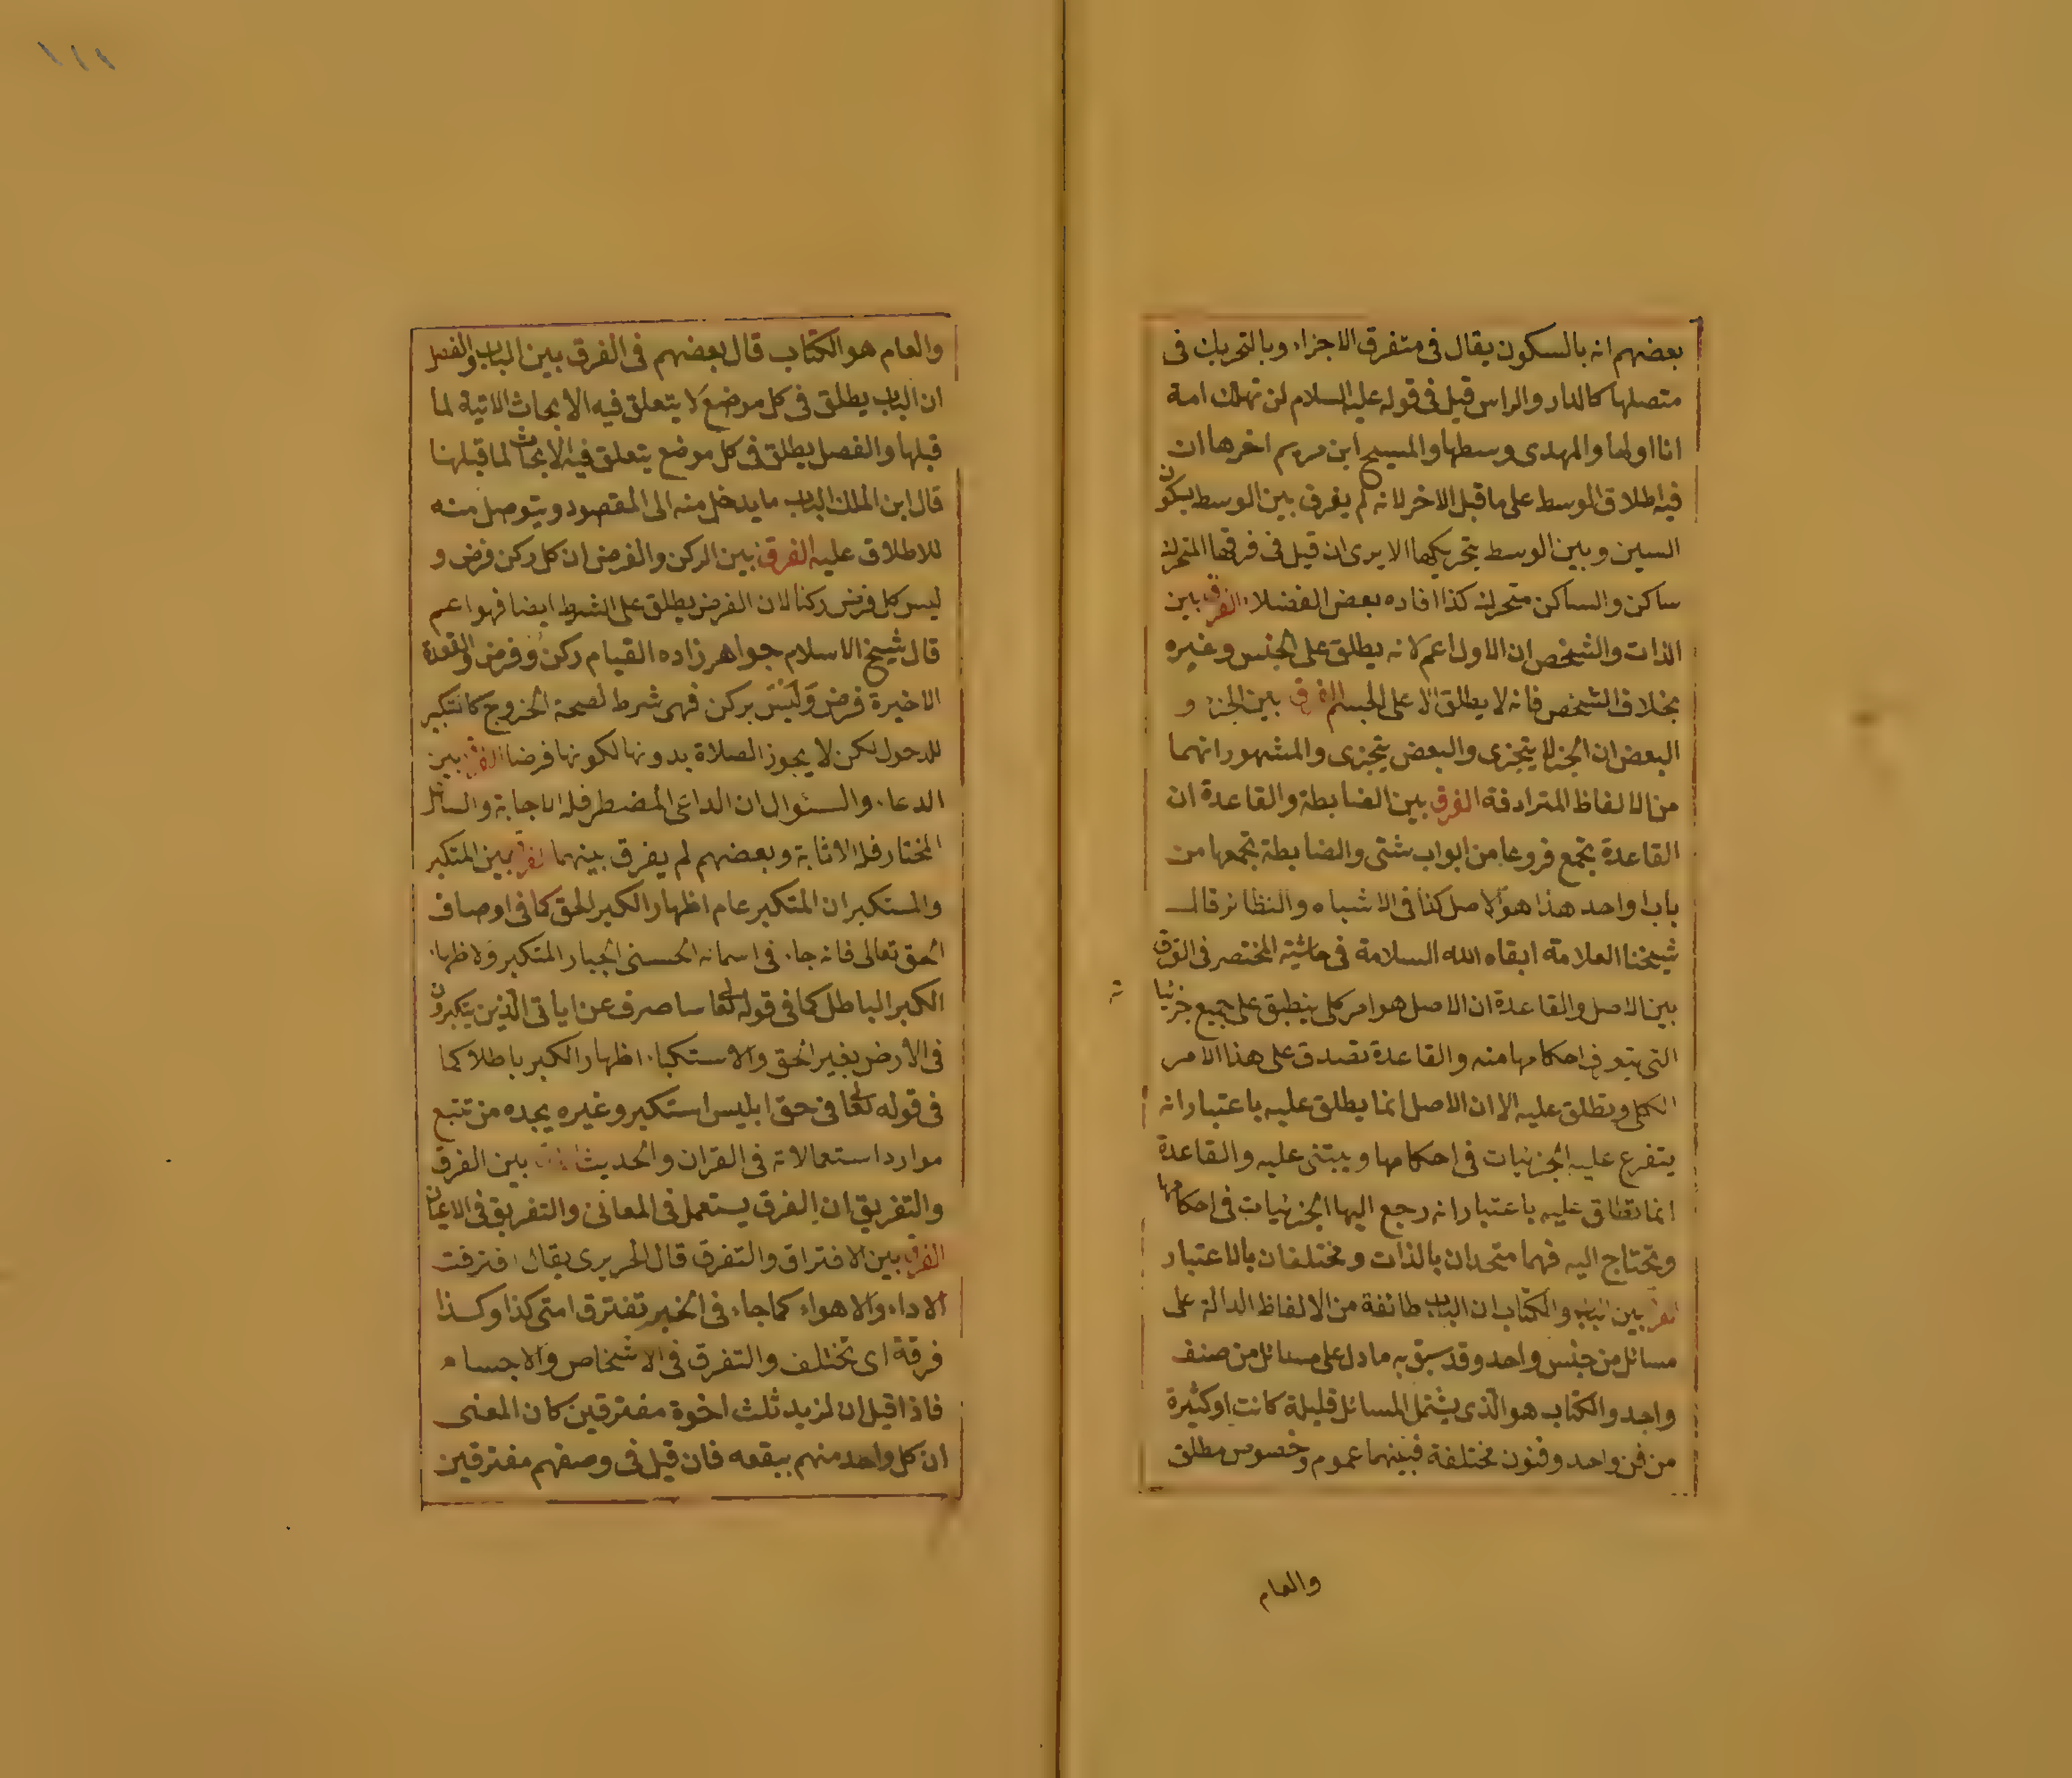 بعضهم انه بالسكون يقال في متفرق الاجزاء وبالتحريك في
متصلها كالدار والراس قيل في قوله عليه السلام لن تهلك امة
انا اولها والمهدى وسطها والمسيح ابن مريم اخرها ان
فيه اطلاق الوسط على ما قبل الاخر لانه لم يفرق بين الوسط بسكون
السين وبين الوسط بتحريكها الا يرى ان قيل في فرقها المتحرك
ساكن والساكن متحرك كذا افاده بعض الفضلاء الفرق بين
الذات والشخص ان الاول اعم لانه يطلق على الجنس وغيره
بخلاف الشخص فانه لا يطلق الا على الجسم الفرق بين الجزء و
البعض ان الجزء لا يتجزى والبعض يتجزى والمشهور انهما
من الالفاظ المترادفة الفرق بين الضابطة والقاعدة ان
القاعدة تجمع فروعا من ابواب شتى والضابطة تجمعها من
باب واحد هذا هو الاصل كذا في الاشباه والنظائر قال
شيخنا العلامة ابقاه الله السلامة في حاشية المختصر في الفرق
بين الاصل والقاعدة ان الاصل هو امر كلى ينطبق على جميع جزئيا
ته
التى يتعرف احكامها منه والقاعدة تصدق على هذا الامر
الكلى وتطلق عليه الا ان الاصل انما يطلق عليه باعتبار انه
يتفرع عليه الجزئيات في احكامها ويبتنى عليه والقاعدة
انما تطلق عليه باعتبار انه رجع اليها الجزئيات في احكامها
وتحتاج اليه فهما متحدان بالذات ومختلفان بالاعتبار
الفرق بين الباب والكتاب ان الباب طائفة من الالفاظ الدالة على
مسائل من جنس واحد وقد سبق به ما دل على مسائل من صنف
واحد والكتاب هو الذى يشتمل المسائل قليلة كانت او كثيرة
من فن واحد وفنون مختلفة فبينهما عموم وخصوص مطلق
والعام
١١١
والعام هو الكتاب قال بعضهم في الفرق بين الباب والفصل
ان الباب يطلق في كل موضع لا يتعلق فيه الابحاث الاتية لما
قبلها والفصل يطلق في كل موضع يتعلق فيه الابحاث لما قبلها
قال ابن الملك الباب ما يدخل منه الى المقصود ويتوصل منه
للاطلاق عليه الفرق بين الركن والفرض ان كل ركن فرض و
ليس كل فرض ركنا لان الفرض يطلق على الشرط ايضا فهو اعم
قال شيخ الاسلام جواهر زاده القيام ركن وفرض والقعدة
الاخيرة فرض وليس بركن فهى شرط لصحة الخروج كالتكبير
للدخول لكن لا يجوز الصلاة بدونها لكونها فرضا الفرق بين
الدعاء والسئوال ان الداعى المضطر فله الاجابة والسائل
المختار فله الاثابة وبعضهم لم يفرق بينهما الفرق بين المتكبر
والمستكبر ان المتكبر عام اظهار الكبر الحق كما في اوصاف
الحق تعالى فانه جاء في اسمائه الحسنى الجبار المتكبر ولاظهار
الكبر الباطل كما في قوله تعالى ساصرف عن اياتى الذين يتكبرون
في الارض بغير الحق والاستكبار اظهار الكبر باطلا كما
في قوله تعالى في حق ابليس استكبر وغيره يجده من تتبع
موارد استعمالاته في القران والحديث الفرق بين الفرق
والتفريق ان الفرق يستعمل في المعانى والتفريق في الاعيان
الفرق بين الافتراق والتفرق قال الحريرى يقال افترقت
الاراء والاهواء كما جاء في الخبر تفترق امتى كذا وكذا
فرقة اى تختلف والتفرق في الاشخاص والاجسام
فاذا قيل ان لزيد ثلث اخوة مفترقين كان المعنى
ان كل واحد منهم ببقعه فان قيل في وصفهم مفترقين